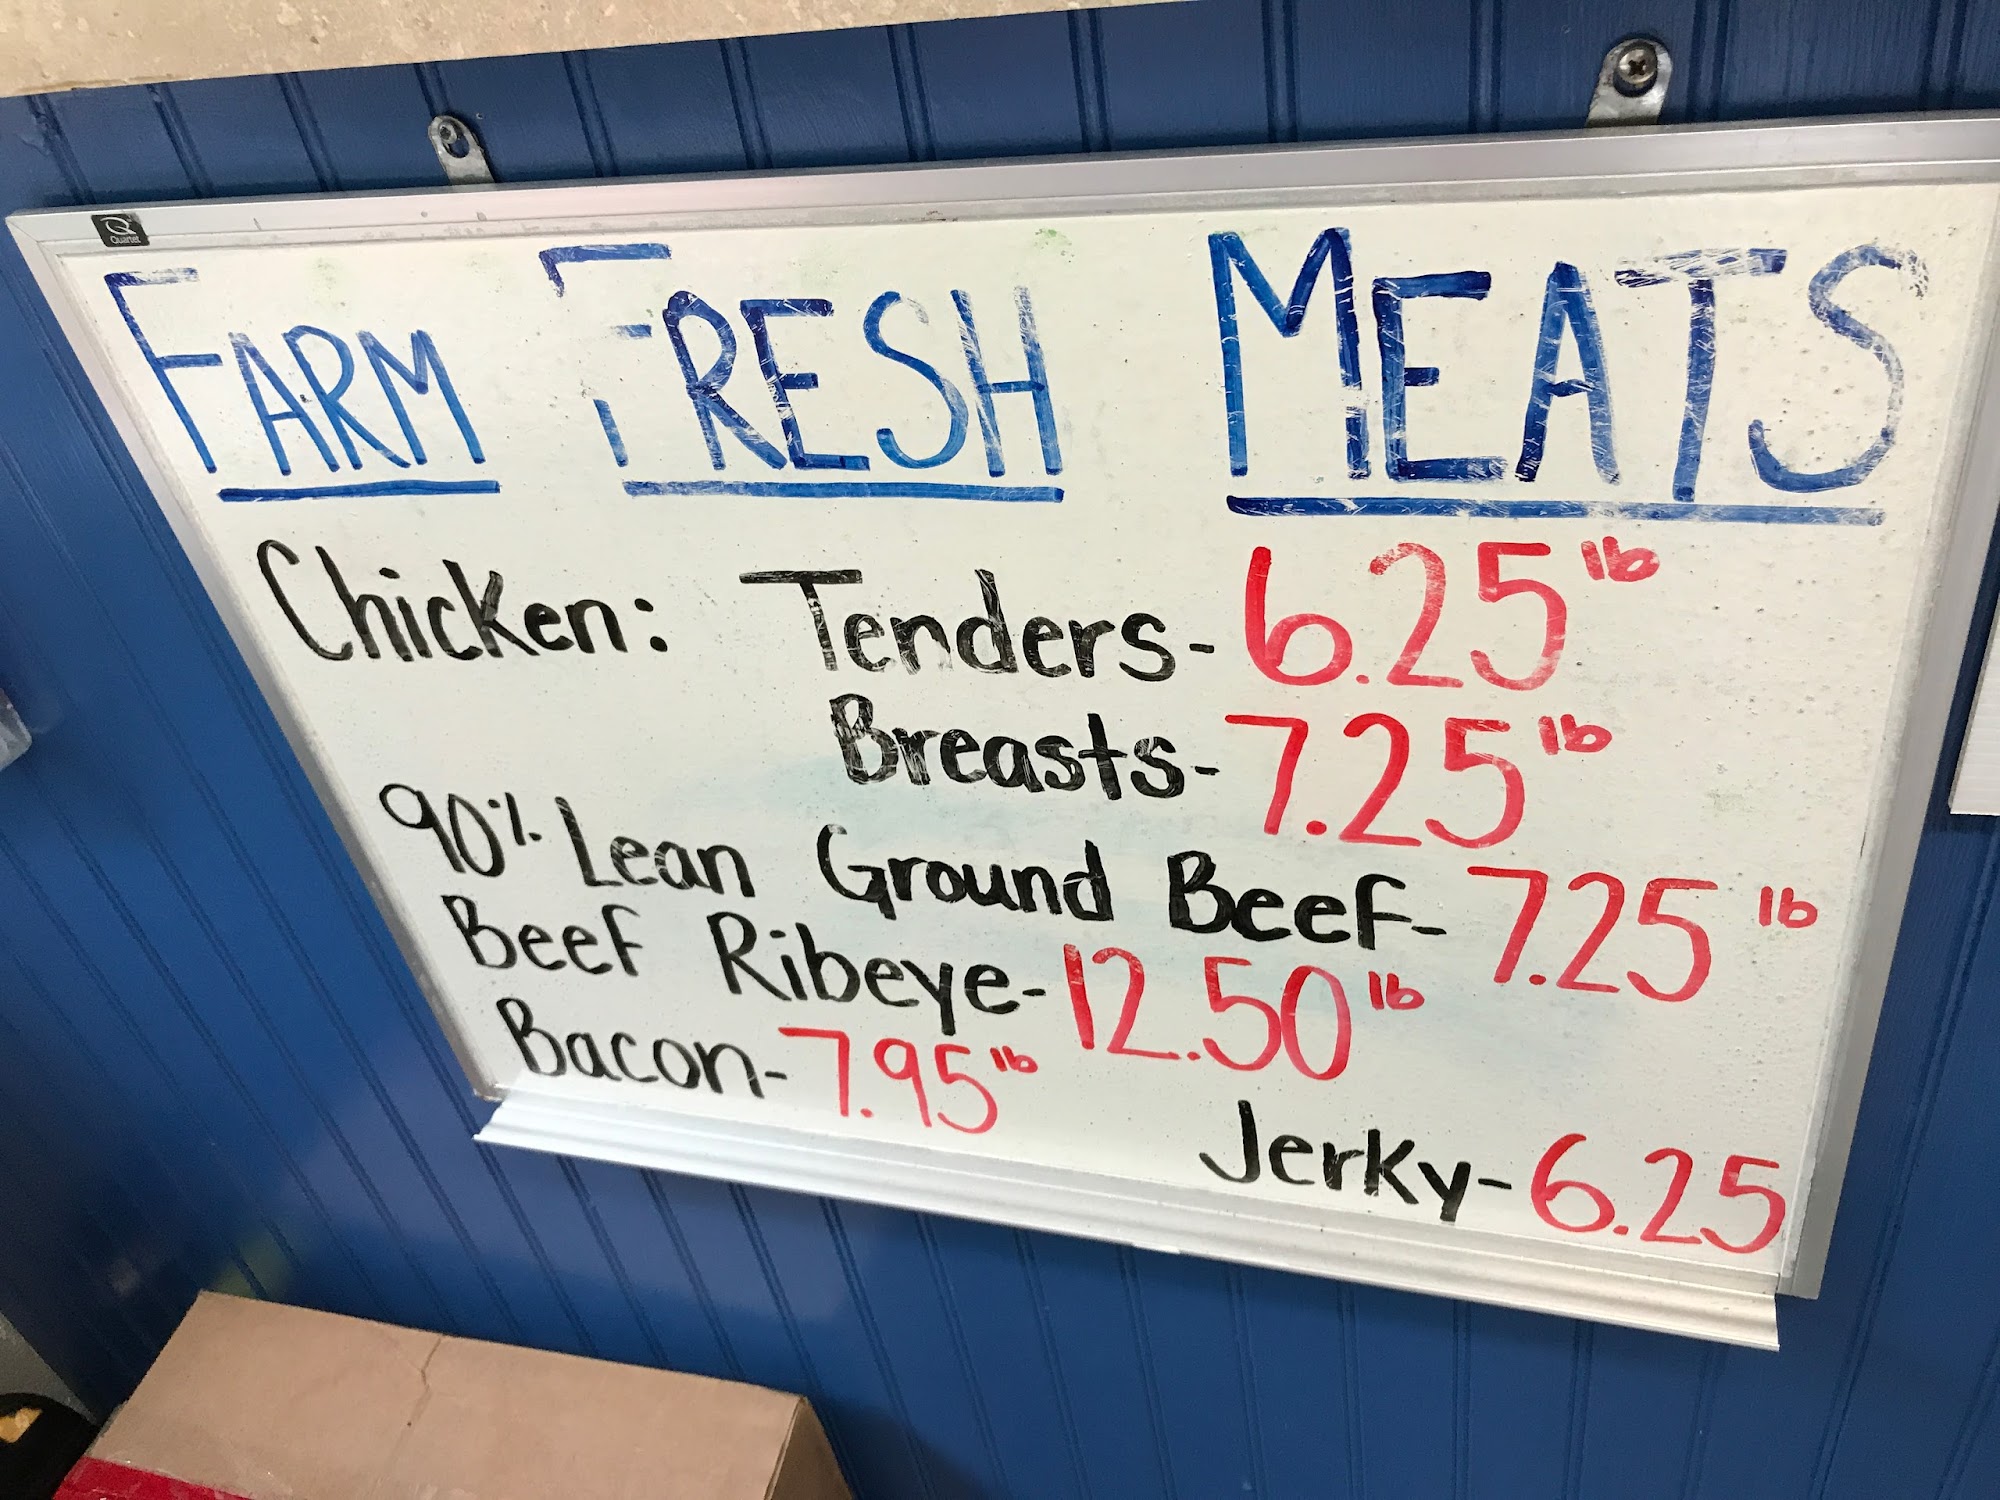 Quartet
FARM FRESH MEATS
Chicken: Tenders- 6.25 lb
Breasts- 7.25 lb
90% Lean Ground Beef- 7.25 lb
Beef Ribeye- 12.50 lb
Bacon- 7.95 lb
Jerky- 6.25